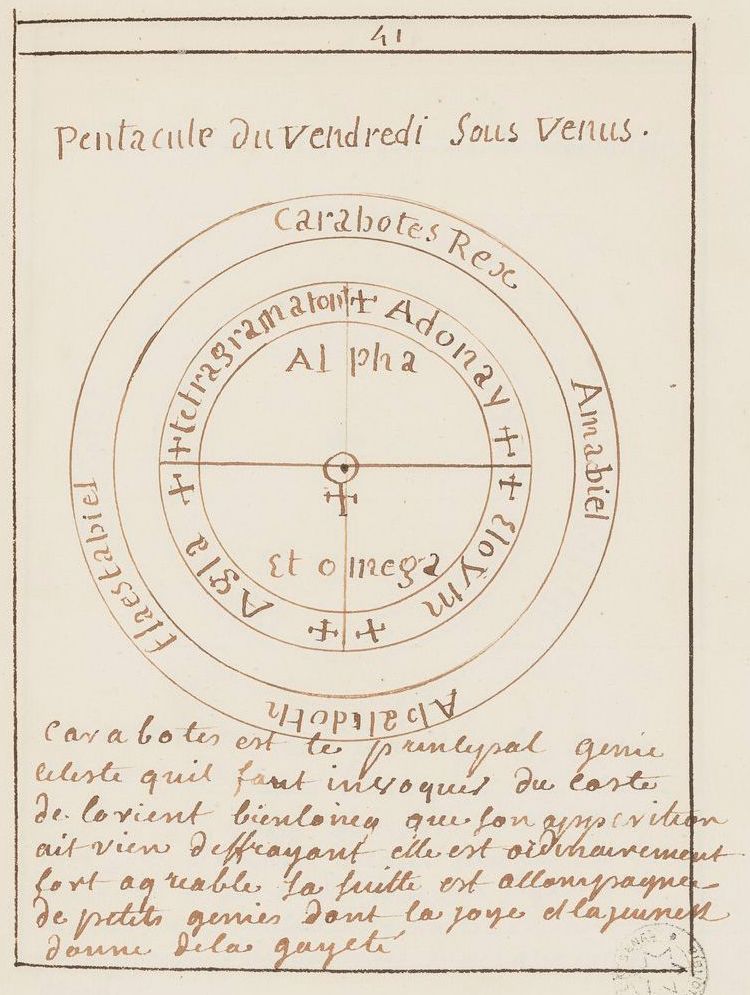 41
Pentacule du Vendredi Sous Venus.
Carabotes Rex
Amabiel
Abalidoth
Flaestabiel
+ Adonay +
+ Eloym +
+ Agla +
+ tetragramaton
Alpha
+
Et omega
Carabotes est le principal genie
Celeste quil faut invoquer du coste
de lorient bienloing que son apparition
ait rien deffrayant elle est ordinairement
fort agreable Sa suitte est accompagnee
de petits genies dont la joye et la jeuness
donne dela gayeté